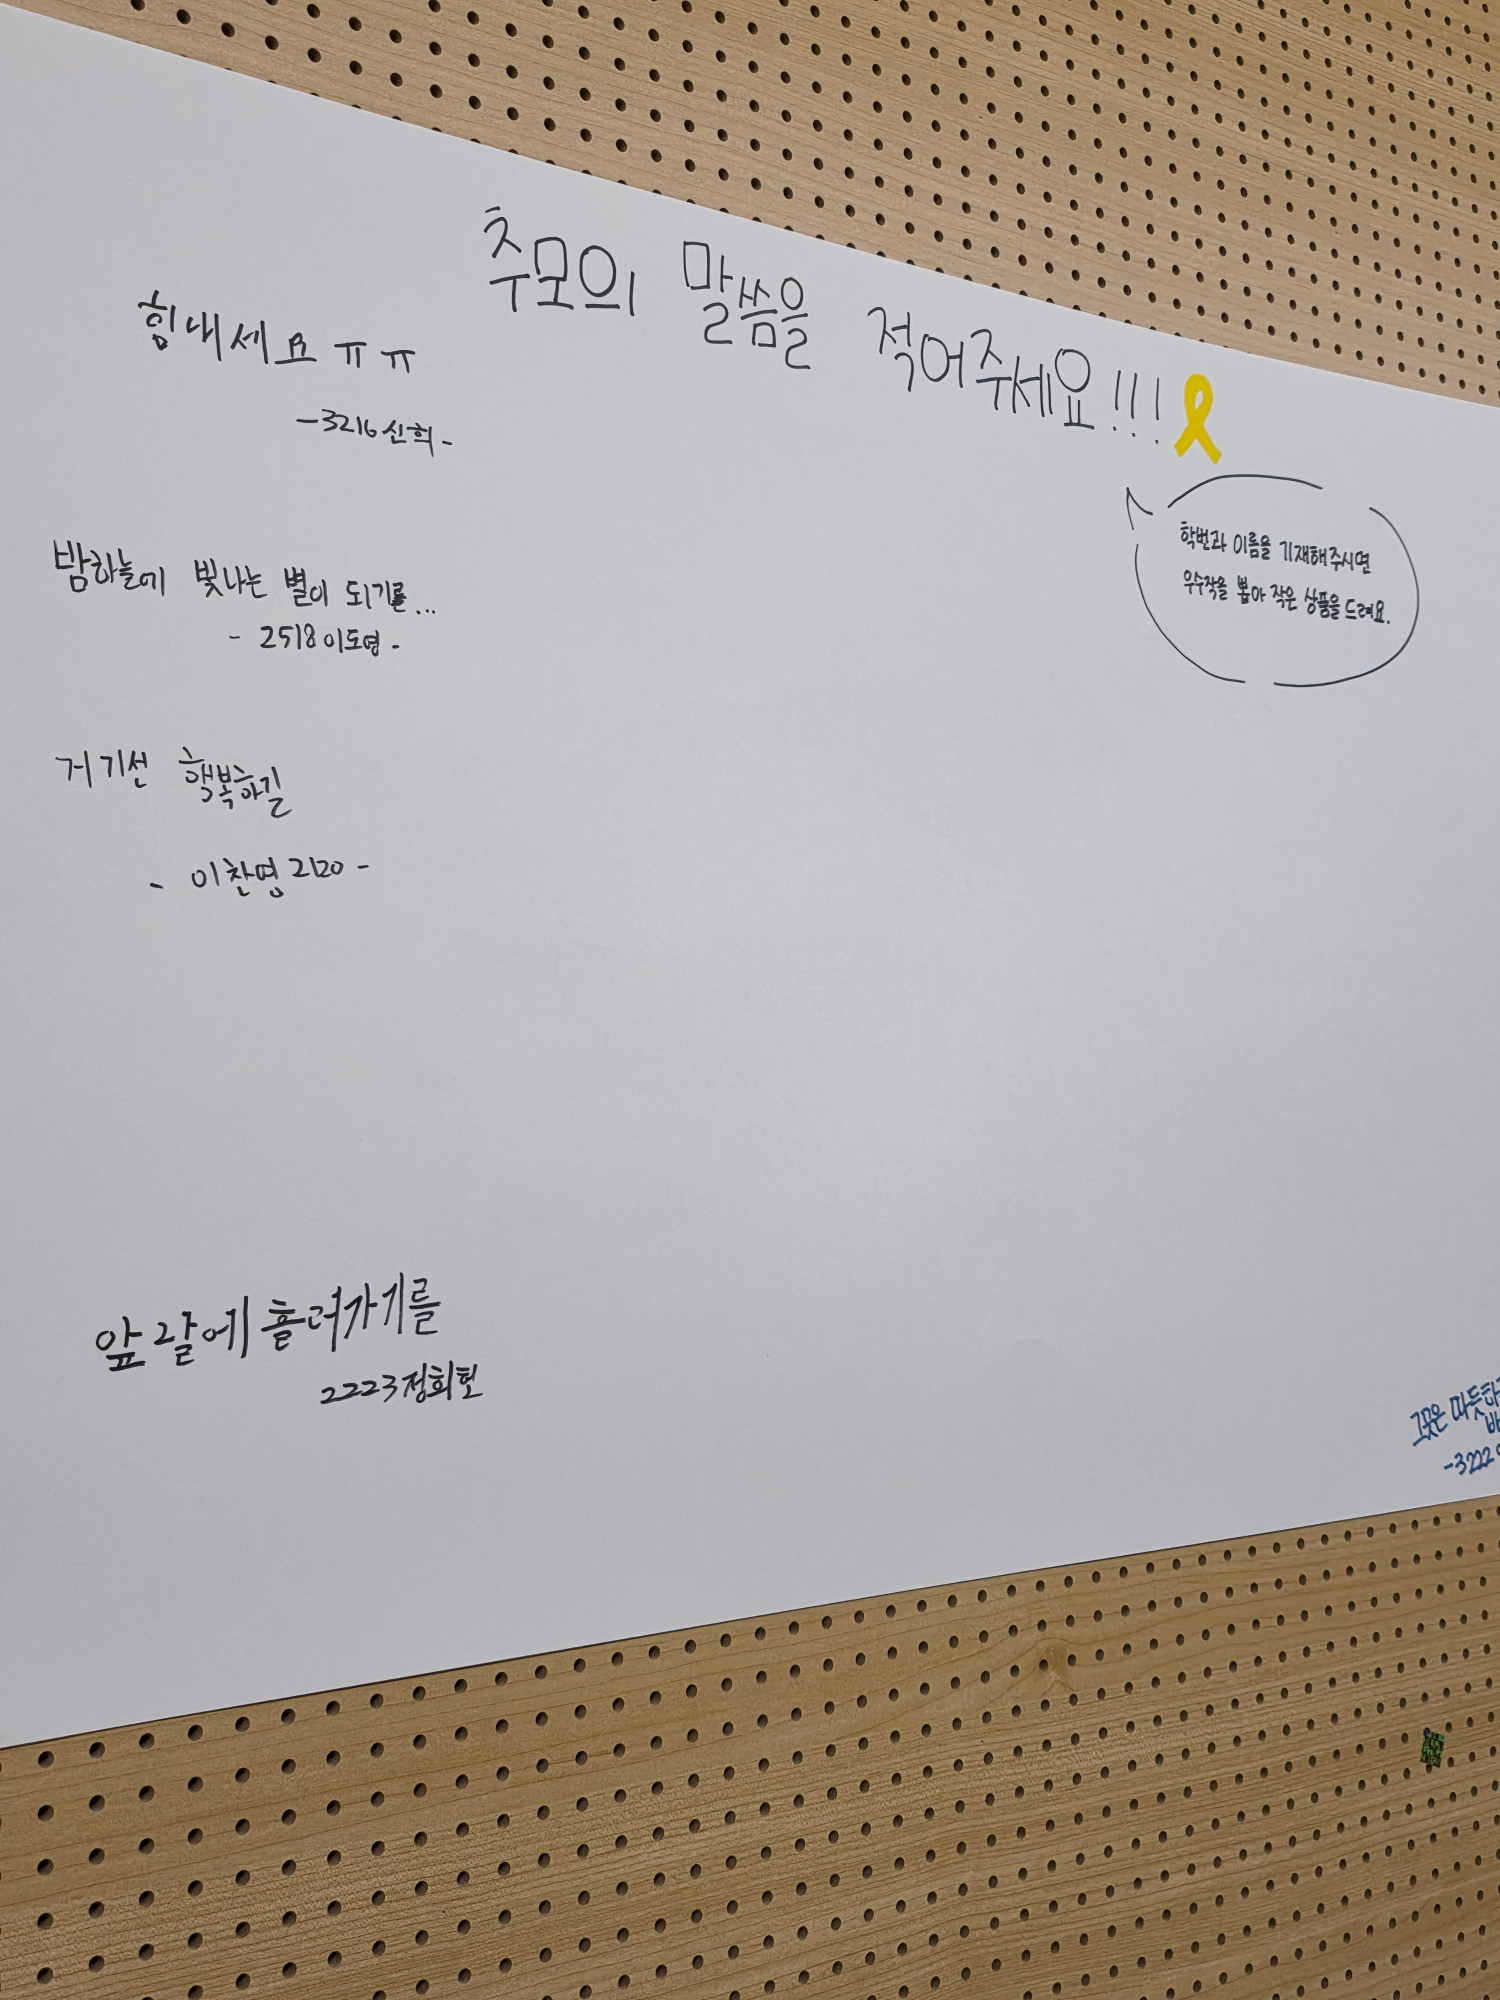 추모의 말씀을 적어주세요!!!
힘내세요 ㅠㅠ
-3216 신희-
학번과 이름을 기재해주시면
우수작을 뽑아 작은 상품을 드려요.
밤하늘에 빛나는 별이 되기를...
- 2518 이도영 -
거기선 행복하길
- 이찬영 2120 -
앞 갈에 흘러가기를
2223 정희헌
그곳은 따듯하
-3222